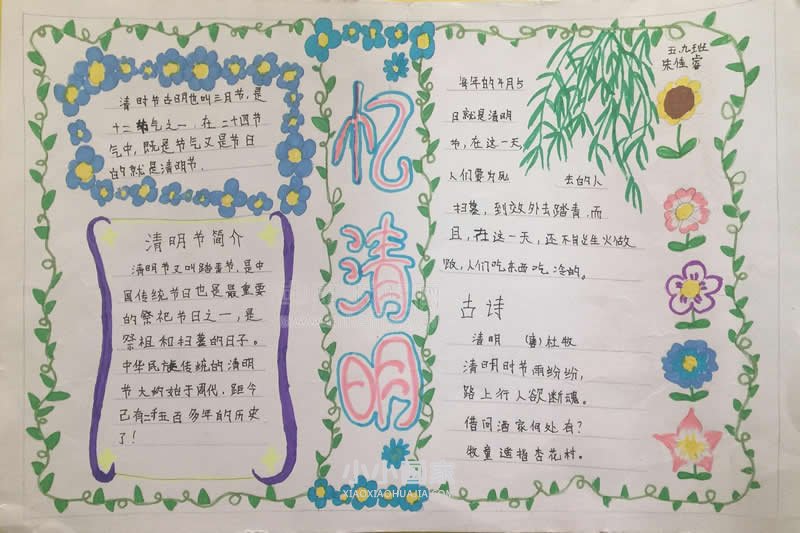 清时节古明也叫三月节,是
十二节气之一,在二十四节
气中,既是节气又是节日
的就是清明节.
清明节简介
清明节又叫踏青节,是中
国传统节日也是最重要
的祭祀节日之一,是
祭祖和扫墓的日子。
中华民族传统的清明
节大约始于周代,距今
已有二千五百多年的历史
了!
忆清明
五.九班
朱佳睿
每年的4月5
日就是清明
节,在这一天,
人们要为死 去的人
扫墓,到效外去踏青,而
且,在这一天,还不生火做
饭,人们吃东西吃冷的。
古诗
清明 (唐)杜牧
清明时节雨纷纷,
路上行人欲断魂。
借问酒家何处有?
牧童遥指杏花村。
小小画家
XIAOXIAOHUAJIA.COM